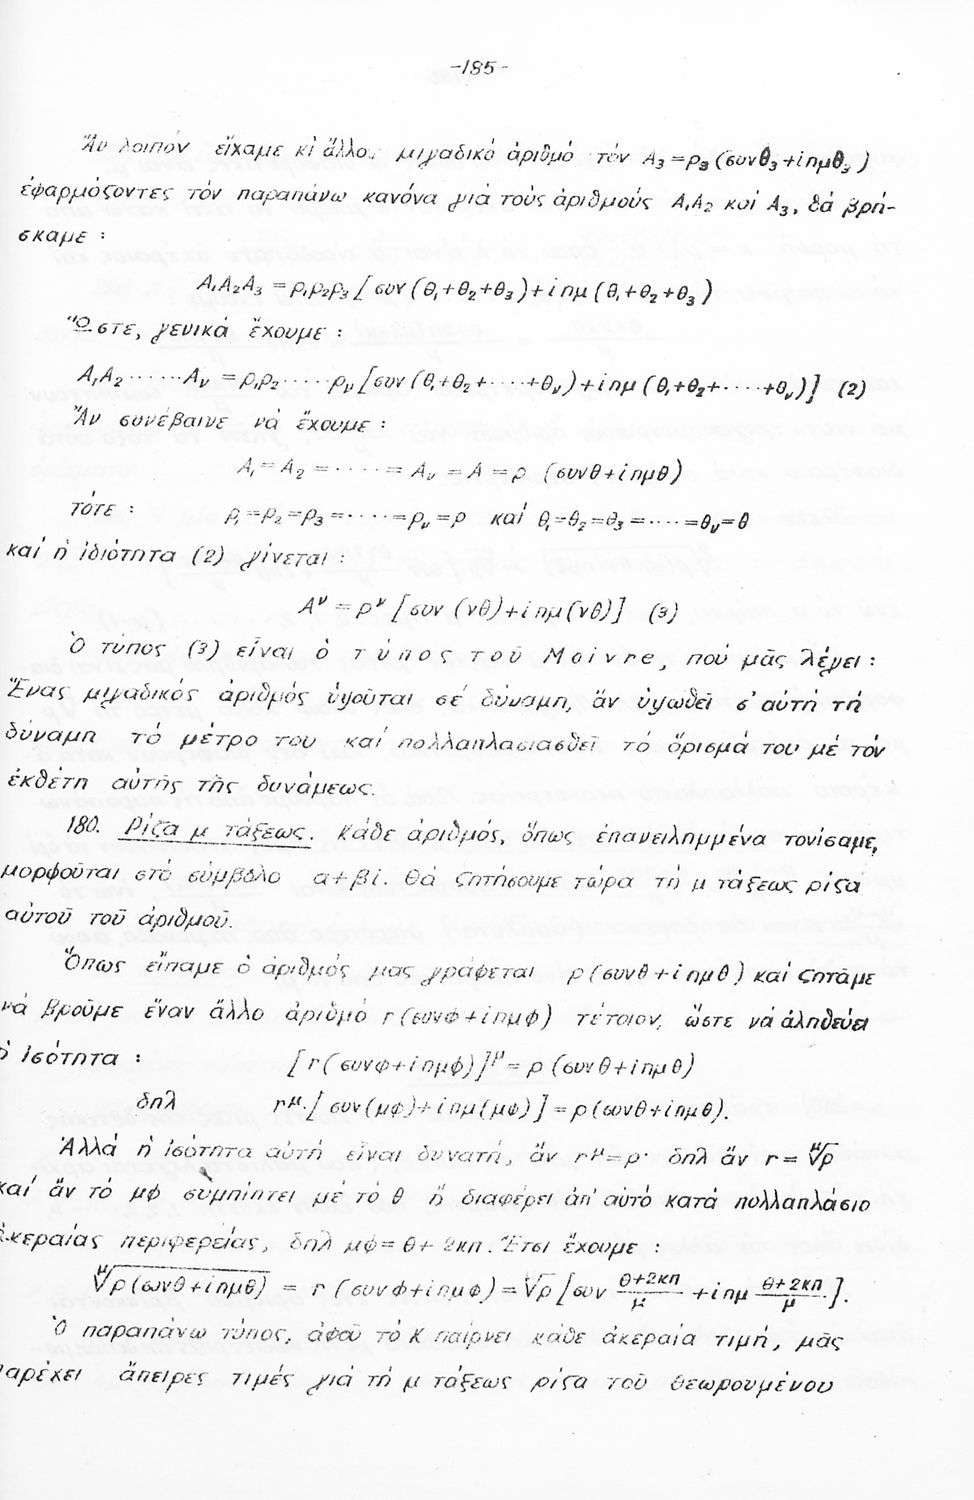 -185-
Ἄν λοιπόν εἴχαμε κι ἄλλο, μιγαδικό ἀριθμό τόν A₃=ρ₃(συνθ₃+iημθ₃)
ἐφαρμόζοντες τόν παραπάνω κανόνα γιά τούς ἀριθμούς A₁A₂ καί A₃, θά βρή-
σκαμε :
A₁A₂A₃ =ρ₁ρ₂ρ₃[συν(θ₁+θ₂+θ₃)+iημ(θ₁+θ₂+θ₃)
Ὥστε, γενικά ἔχουμε :
A₁A₂······Aν =ρ₁ρ₂·····ρν[συν(θ₁+θ₂+····+θν)+iημ(θ₁+θ₂+····+θν)] (2)
Ἄν συνέβαινε νά ἔχουμε :
A₁=A₂ =·····= Aν = A =ρ (συνθ+iημθ)
τότε : ρ₁=ρ₂=ρ₃=·····=ρν=ρ καί θ₁=θ₂=θ₃=····=θν=θ
καί ἡ ἰδιότητα (2) γίνεται :
Aᵛ = ρᵛ [συν (νθ)+iημ(νθ)] (3)
Ὁ τύπος (3) εἶναι ὁ τύπος τοῦ Moivre, πού μᾶς λέγει :
Ἕνας μιγαδικός ἀριθμός ὑψοῦται σέ δύναμη, ἄν ὑψωθεῖ σ' αὐτή τή
δύναμη τό μέτρο του καί πολλαπλασιασθεῖ τό ὅρισμά του μέ τόν
ἐκθέτη αὐτῆς τῆς δυνάμεως.
180. Ρίζα μ τάξεως. Κάθε ἀριθμός, ὅπως ἐπανειλημμένα τονίσαμε,
μορφοῦται στό σύμβολο α+βi. Θά ζητήσουμε τώρα τή μ τάξεως ρίζα
αὐτοῦ τοῦ ἀριθμοῦ.
Ὅπως εἴπαμε ὁ ἀριθμός μας γράφεται ρ(συνθ+iημθ) καί ζητᾶμε
νά βροῦμε ἕναν ἄλλο ἀριθμό r(συνφ+iημφ) τέτοιον, ὥστε νά ἀληθεύει
ἡ ἰσότητα : [r(συνφ+iημφ)]^μ = ρ (συνθ+iημθ)
δηλ r^μ.[συν(μφ)+iημ(μφ)]=ρ(συνθ+iημθ).
Ἀλλά ἡ ἰσότητα αὐτή εἶναι δυνατή, ἄν r^μ=ρ· δηλ ἄν r= ᵘ√ρ
καί ἄν τό μφ συμπίπτει μέ τό θ ἤ διαφέρει ἀπ' αὐτό κατά πολλαπλάσιο
ἀκεραίας περιφερείας, δηλ μφ=θ+2κπ. Ἔτσι ἔχουμε :
ᵘ√ρ(συνθ+iημθ) = r (συνφ+iημφ)=ᵘ√ρ [συν (θ+2κπ)/μ +iημ (θ+2κπ)/μ].
Ὁ παραπάνω τύπος, ἀφοῦ τό κ παίρνει κάθε ἀκεραία τιμή, μᾶς
παρέχει ἄπειρες τιμές γιά τή μ τάξεως ρίζα τοῦ θεωρουμένου